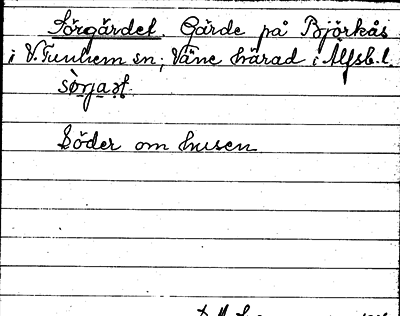 Sörgärdet. Gärde på Björkås
i V. Tunhem sn; Väne härad i Älfsb. l.
Söder om husen